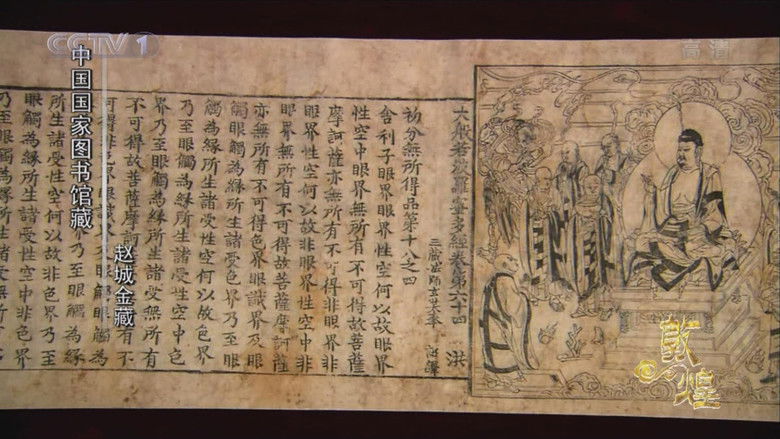 CCTV 1
高清
中国国家图书馆藏
赵城金藏
大般若波羅蜜多經卷第六十四 洪
三藏法師玄奘奉 詔譯
初分無所得品第十八之四
舍利子眼界眼界性空何以故眼界
性空中眼界無所有不可得故菩薩
摩訶薩亦無所有不可得非眼界非
眼界性空何以故非眼界性空中非
眼界無所有不可得故菩薩摩訶薩
亦無所有不可得色界眼識界及眼
觸眼觸為緣所生諸受色界乃至眼
觸為緣所生諸受性空何以故色界
乃至眼觸為緣所生諸受性空中色
界乃至眼觸為緣所生諸受無所有
不可得故菩薩摩訶 有不
可得非色界眼識界及眼觸眼觸為
乃至眼觸為緣
所生諸受性空何以故非色界乃至
眼觸為緣所生諸受性空中非色界
乃至眼觸為緣所生諸受無所
敦煌